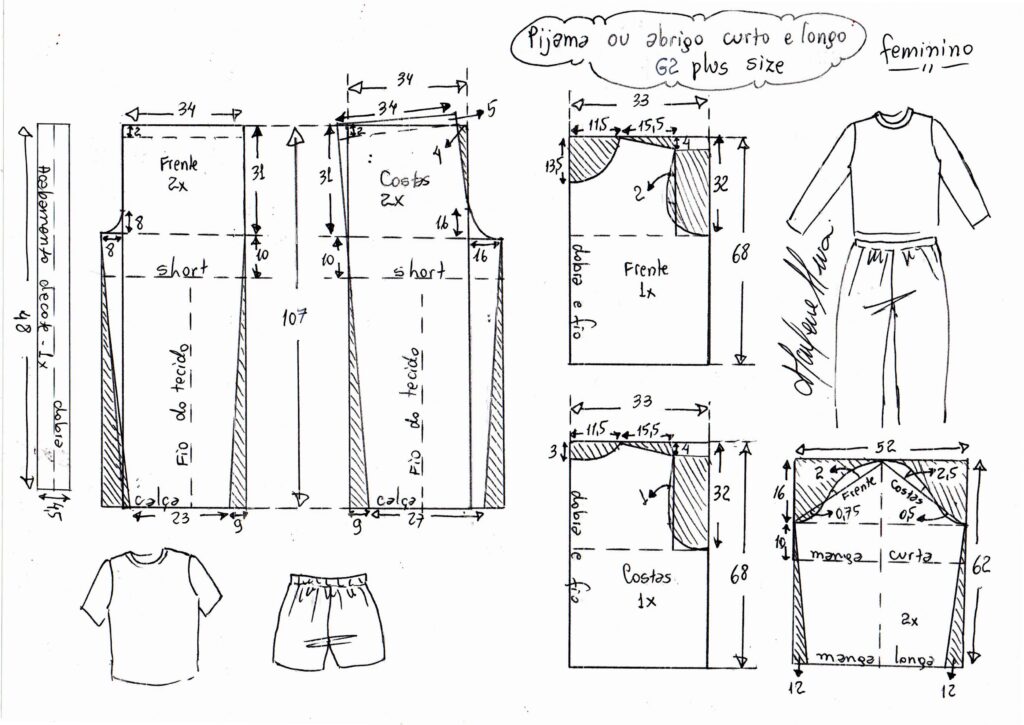 Pijama ou abrigo curto e longo
G2 plus size
feminino
34
2
Frente
2x
31
8
8
10
short
Fio do tecido
calça
23
9
107
34
34
5
2
4
Costas
2x
31
16
16
10
short
Fio do tecido
calça
9
27
Acabamento decote - 1x
dobra
48
45
33
11,5
15,5
4
13,5
2
32
68
dobra e fio
Frente
1x
33
11,5
15,5
4
3
1
32
68
dobra e fio
Costas
1x
Marlene Mukai
52
2
2,5
Frente
Costas
16
0,75
0,5
10
manga curta
62
2x
manga longa
12
12